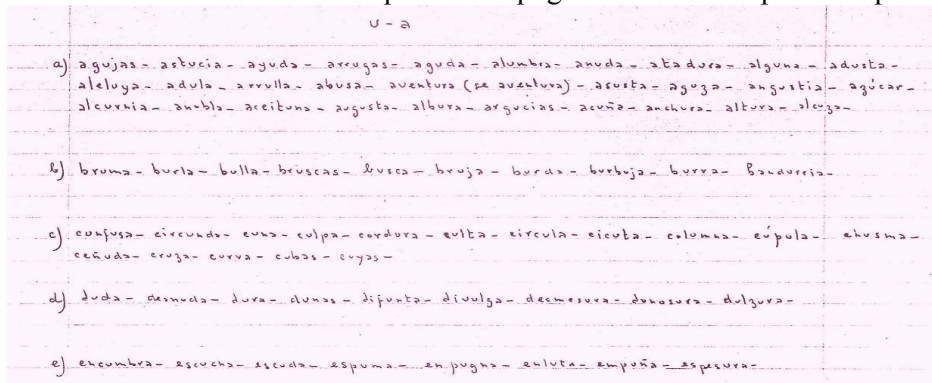 u - a
a) agujas - astucia - ayuda - arrugas - aguda - alumbra - anuda - atadura - alguna - adusta -
aleluya - adula - arrulla - abusa - aventura (se aventura) - asusta - aguza - angustia - azúcar -
alcurnia - anubla - aceituna - augusta - albura - argucias - acuña - anchura - altura - alcuza -
b) bruma - burla - bulla - bruscas - busca - bruja - burda - burbuja - burra - bandurria -
c) confusa - circunda - cuna - culpa - cordura - culta - circula - cicuta - columna - cúpula - chusma -
ceñuda - cruza - curva - cubas - cuyas -
d) duda - desnuda - dura - dunas - difunta - divulga - desmesura - donosura - dulzura -
e) encumbra - escucha - escuda - espuma - en pugna - enluta - empuña - espesura -